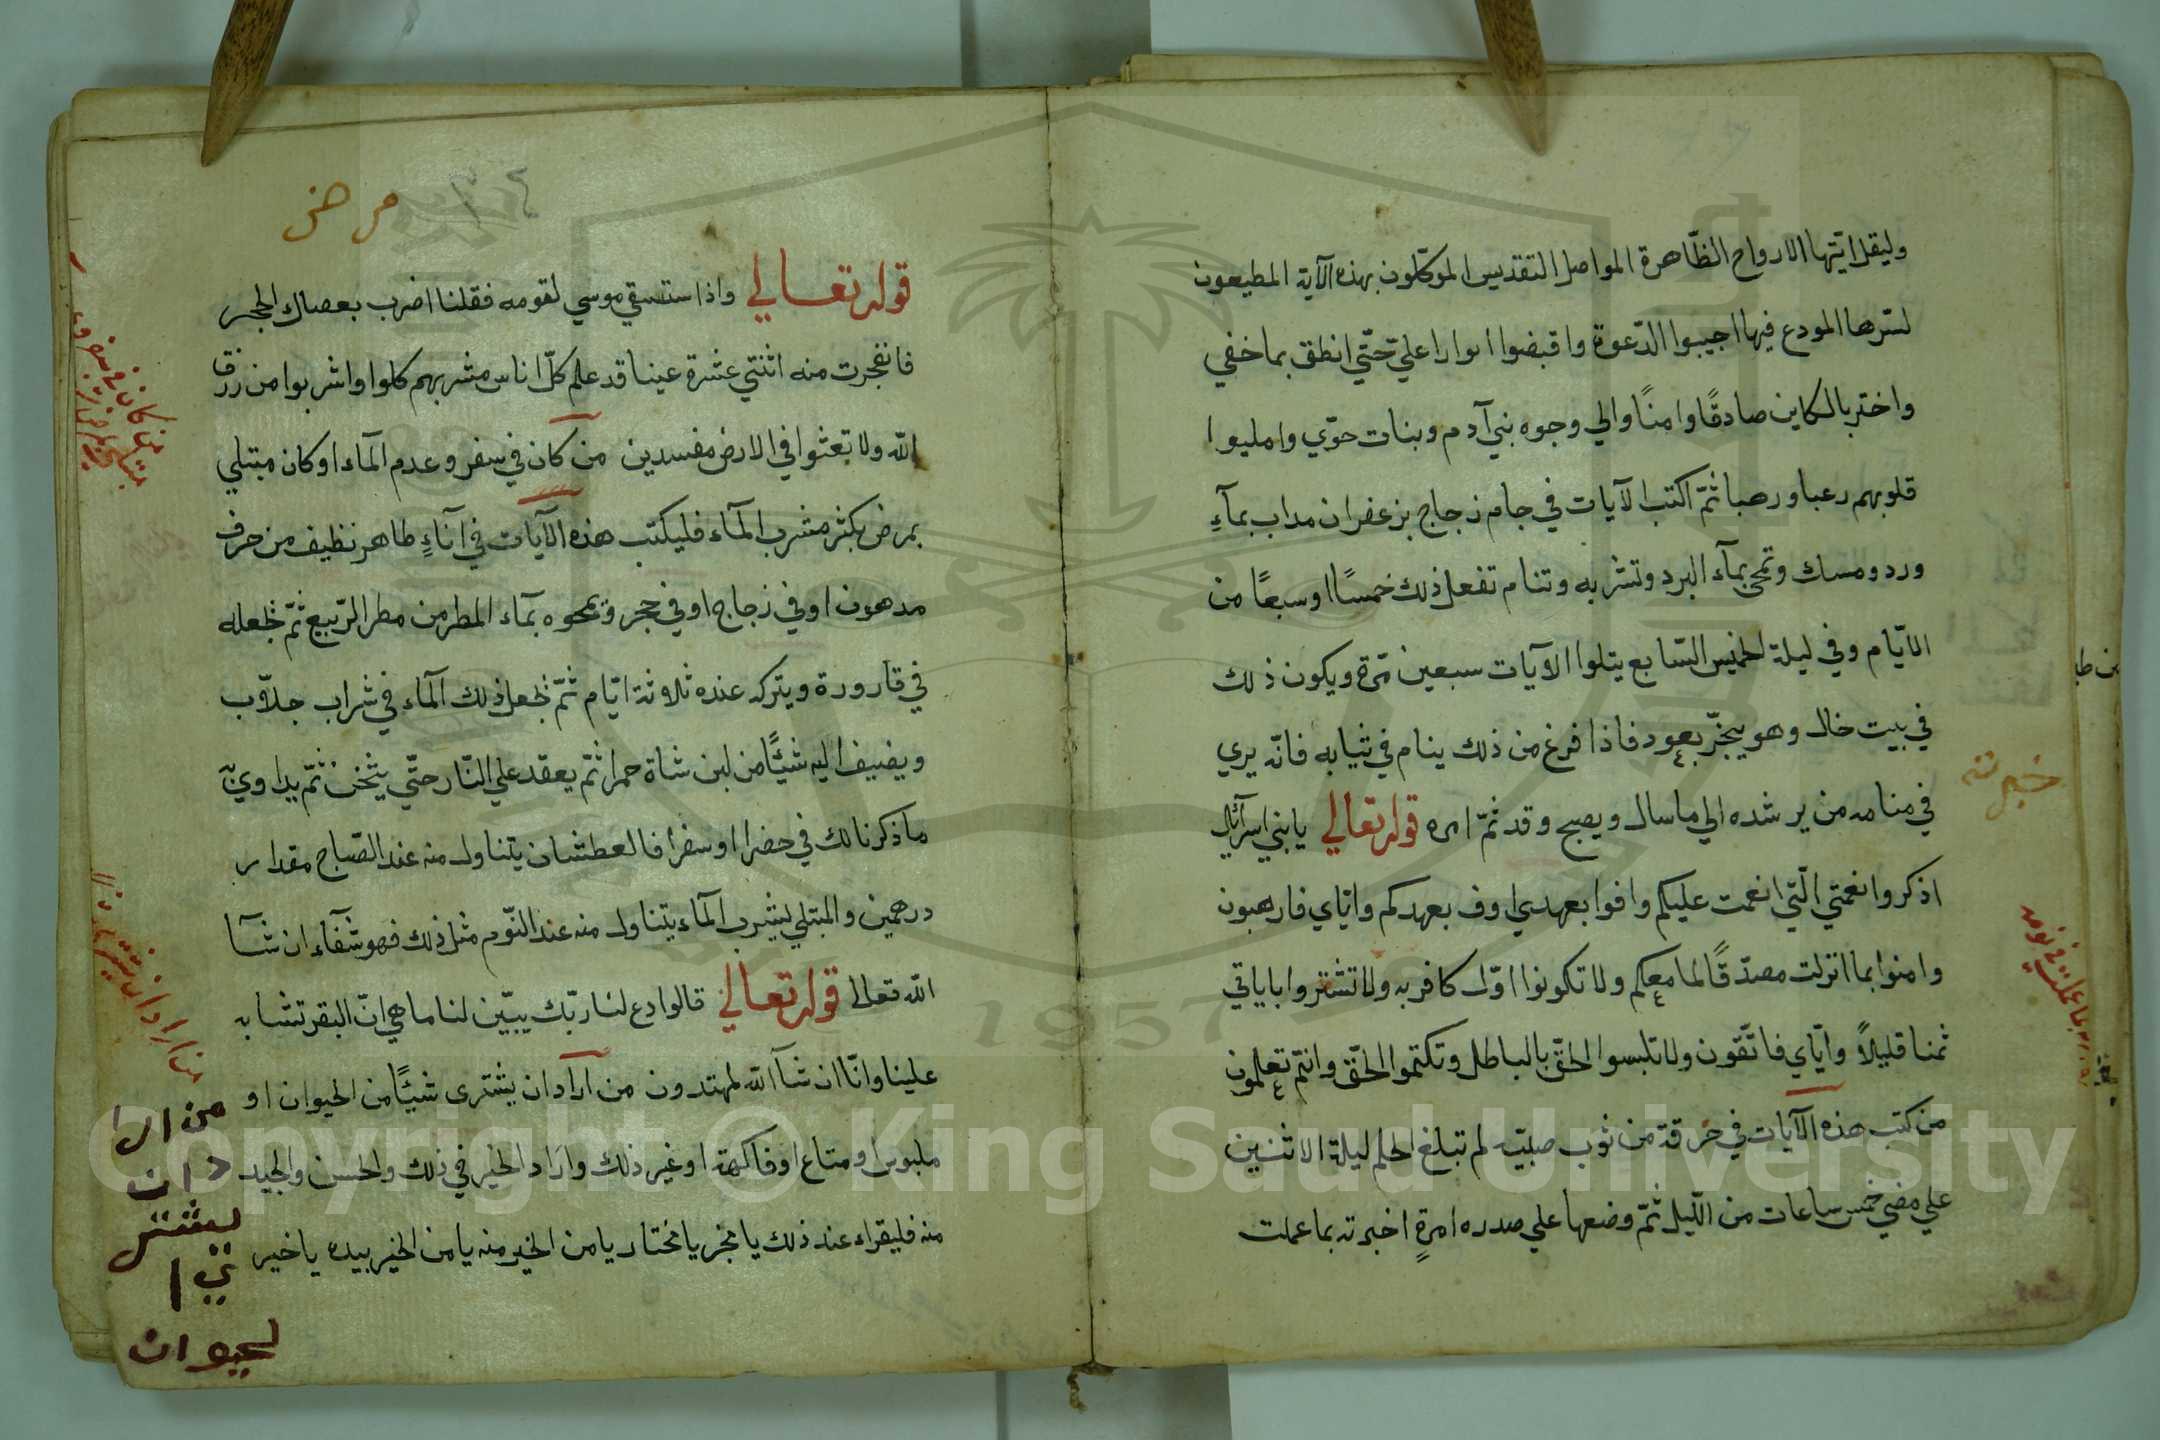 وليقل ايّتها الارواح الظّاهرة المواصل التقديس الموكّلون بهذه الآية المطيعون
لسرّها المودع فيها اجيبوا الدّعوة واقبضوا انوارا عليّ حتّي انطق بما خفي
واختر بالكاين صادقًا وامنًا والي وجوه بني آدم وبنات حوّي وامليوا
قلوبهم رعبا ورهبا ثمّ اكتب الآيات في جام زجاج بزعفران مداب بمآءِ
ورد ومسك وتمحي بمآء البرد وتشربه وتنام تفعل ذلك خمسًا او سبعًا من
الايّام وفي ليلة الخميس السّابع يتلوا الآيات سبعين مرّة ويكون ذلك
في بيت خال وهو يبخّر بعود فاذا فرغ من ذلك ينام في ثيابه فانّه يري
في منامه من يرشده الي ما سال ويصبح وقد ثمّ امره قوله تعالي يا بني اسرآئل
اذكروا نعمتي الّتي انعمت عليكم وافوا بعهدي اوف بعهدكم وايّاي فارهبون
وامنوا بما انزلت مصدّقًا لما معكم ولا تكونوا اوّل كافر به ولا تشتروا باياتي
ثمنا قليلاً وايّاي فاتّقون ولا تلبسوا الحقّ بالباطل وتكتموا الحقّ وانتم تعلمون
من كتب هذه الآيات في خرقة من ثوب صبيّه لم تبلغ الحلم ليلة الاثنين
علي مضي خمس ساعات من اللّيل ثمّ وضعها علي صدره امرةٍ اخبرته بما عملت
مرض
قوله تعالي واذا ستسقي موسي لقومه فقلنا اضرب بعصاك الحجر
فانفجرت منه اثنتي عشرة عينا قد علم كلّ اناس مشربهم كلوا واشربوا من رزق
الله ولا تعثوا في الارض مفسدين من كان في سفر وعدم المآء او كان مبتلي
بمرض بكثر مشرب المآء فليكتب هذه الآيات في انآءٍ طاهر نظيف من خزف
مدهون او في زجاج او في حجر ويمحوه بمآء المطر من مطر الرّبيع ثمّ تجعله
في قارورة ويتركه عنده ثلاثة ايّام ثمّ تجعل ذلك المآء في شراب جلاّب
ويضيف اليه شيئًا من لبن شاة حمرا ثمّ يعقد علي النّار حتّي يثخن ثمّ يداوي به
ما ذكرنا لك في حضرا او سفرا فالعطشان يتناول منه عند الصّباح مقدار
درهمين والمبتلي بشرب المآء يتناول منه عند النّوم مثل ذلك فهو شفآء ان شآ
الله تعالي قوله تعالي قالوا دع لنا ربّك يبيّن لنا ما هي انّ البقر تشابه
علينا وانّا ان شآ الله لمهتدون من آراد ان يشتري شيئًا من الحيوان او
ملبوس او متاع او فاكهة او غير ذلك واراد الخير في ذلك والحسن والجيد
منه فليقراء عند ذلك يا مخير يا مختار يا من الخير منه يا من الخير بيده يا خير
من ارا
د ان
يشتر
ي ا
لحيوان